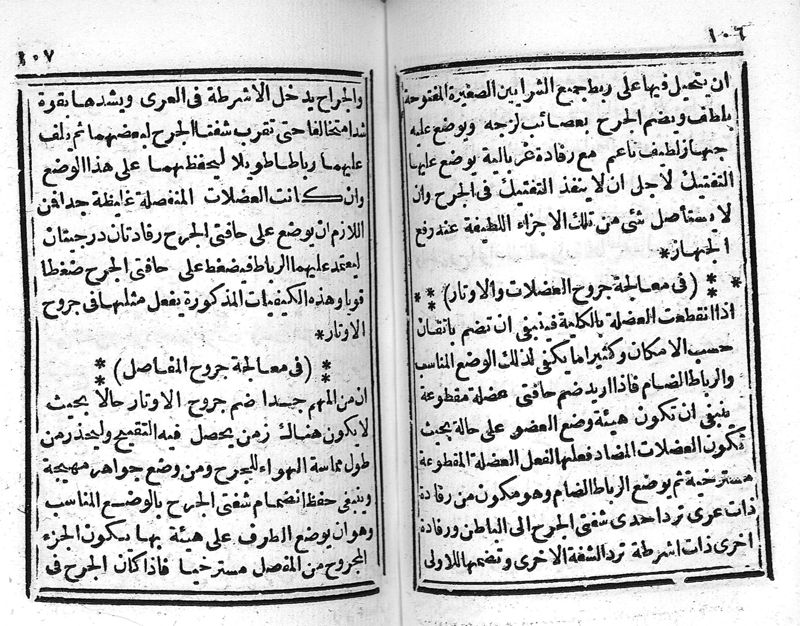 ١٠٦
ان يتحيل فيها على ربط جميع الشرايين الصغيرة المفتوحة
باطف ويضم الجرح بعصائب لزجه ويوضع عليه
جهاز لطيف ناعم مع رفادة غربالية يوضع عليها
التفتيك لاجل ان لا ينفذ التفتيك فى الجرح وان
لا يستأصل شئ من تلك الاجزاء اللطيفة عند رفع
الجهاز *
* * (فى معالجة جروح العضلات والاوتار) * *
اذا انقطعت العضلة بالكلية فينبغى ان تضم باتقان
حسب الامكان وكثيرا ما يكفى لذلك الوضع المناسب
والرباط الضام فاذا اريد ضم حافتى عضلة مقطوعة
ينبغى ان تكون هيئة وضع العضو على حالة بحيث
تكون العضلات المضاد فعلها لفعل العضلة المقطوعة
مسترخية ثم يوضع الرباط الضام وهو مكون من رفادة
ذات عرى ترد احدى شفتى الجرح الى الباطن ورفادة
اخرى ذات اشرطة ترد الشفة الاخرى وتضمها للاولى
١٠٧
والجراح يدخل الاشرطة فى العرى ويشدها بقوة
شدا متخالفا حتى تقرب شفتا الجرح لبعضهما ثم يلف
عليهما رباطا طويلا ليحفظهما على هذا الوضع
وان كانت العضلات المنفصلة غليظة جدا فن
اللازم ان يوضع على حافتى الجرح رفادتان درجيتان
ليعتمد عليهما الرباط فيضغط على حافتى الجرح ضغطا
قويا وهذه الكيفيات المذكورة يفعل مثلها فى جروح
الاوتار *
* * (فى معالجة جروح المفاصل) * *
ان من المهم جدا ضم جروح الاوتار حالا بحيث
لا يكون هناك زمن يحصل فيه التقيح وليحذر من
طول مماسة الهواء للجرح ومن وضع جواهر مهيجة
وينبغى حفظ انضمام شفتى الجرح بالوضع المناسب
وهو ان يوضع الطرف على هيئة بها يكون الجزء
المجروح من المفصل مسترخيا فاذا كان الجرح فى